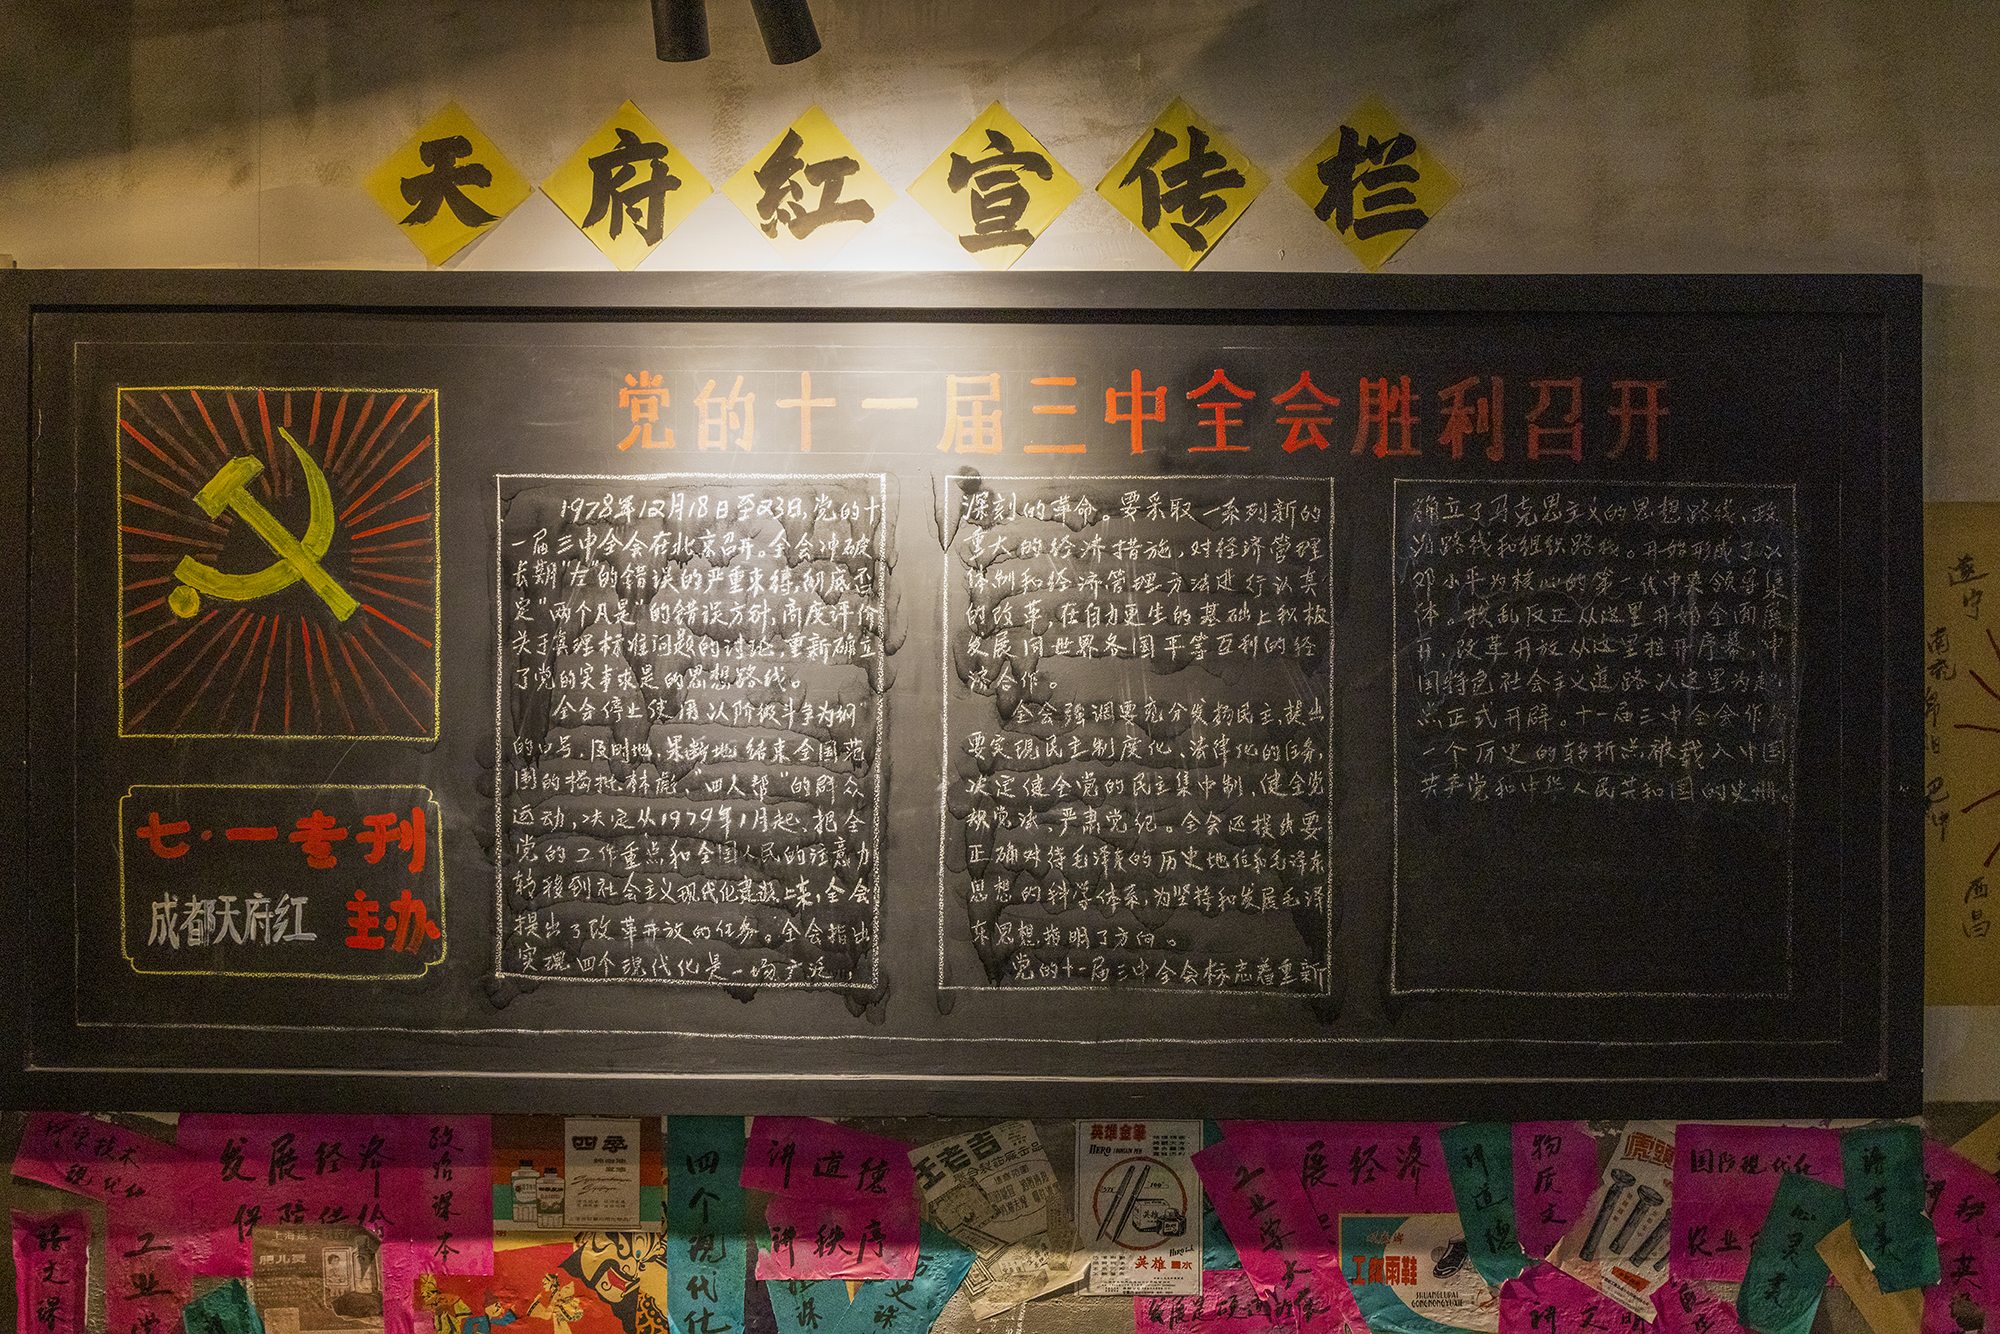 天府紅宣传栏
党的十一届三中全会胜利召开
七·一专刊
成都天府红 主办
1978年12月18日至23日,党的十
一届三中全会在北京召开。全会冲破
长期"左"的错误的严重束缚,彻底否
定"两个凡是"的错误方针,高度评价
关于真理标准问题的讨论,重新确立
了党的实事求是的思想路线。
全会停止使用以阶级斗争为纲
的口号,及时地、果断地结束全国范
围的揭批林彪、"四人帮"的群众
运动,决定从1979年1月起、把全
党的工作重点和全国人民的注意力
转移到社会主义现代化建设上来,全会
提出了改革开放的任务。全会指出
实现四个现代化是一场广泛,
深刻的革命。要采取一系列新的
重大的经济措施,对经济管理
体制和经济管理方法进行认真
的改革,在自力更生的基础上积极
发展同世界各国平等互利的经
济合作。
全会强调要充分发扬民主,提出
要实现民主制度化、法律化的任务,
决定健全党的民主集中制、健全党
规党法、严肃党纪。全会还提出要
正确对待毛泽东的历史地位和毛泽东
思想的科学体系,为坚持和发展毛泽
东思想指明了方向。
党的十一届三中全会标志着重新
确立了马克思主义的思想路线、政
治路线和组织路线。开始形成了以
邓小平为核心的第一代中央领导集
体。拨乱反正从这里开始全面展
开,改革开放从这里拉开序幕,中
国特色社会主义道路以这里为起
点正式开辟。十一届三中全会作为
一个历史的转折点被载入中国
共产党和中华人民共和国的史册。
遂宁
南充
巴中
西昌
科学技术
现代化
发展经济
政治课本
语文课
工业学
肥儿灵
四季
四个现代化
讲道德
讲秩序
王老吉
英雄金笔
HERO FOUNTAIN PEN
英雄墨水
工业学大
展经济
讲道德
物质文
虎头
国防现代化
农业
心灵美
语言美
讲秩
工农雨鞋
SHUANGLUPAI
GONGNONGYUXIE
讲文明